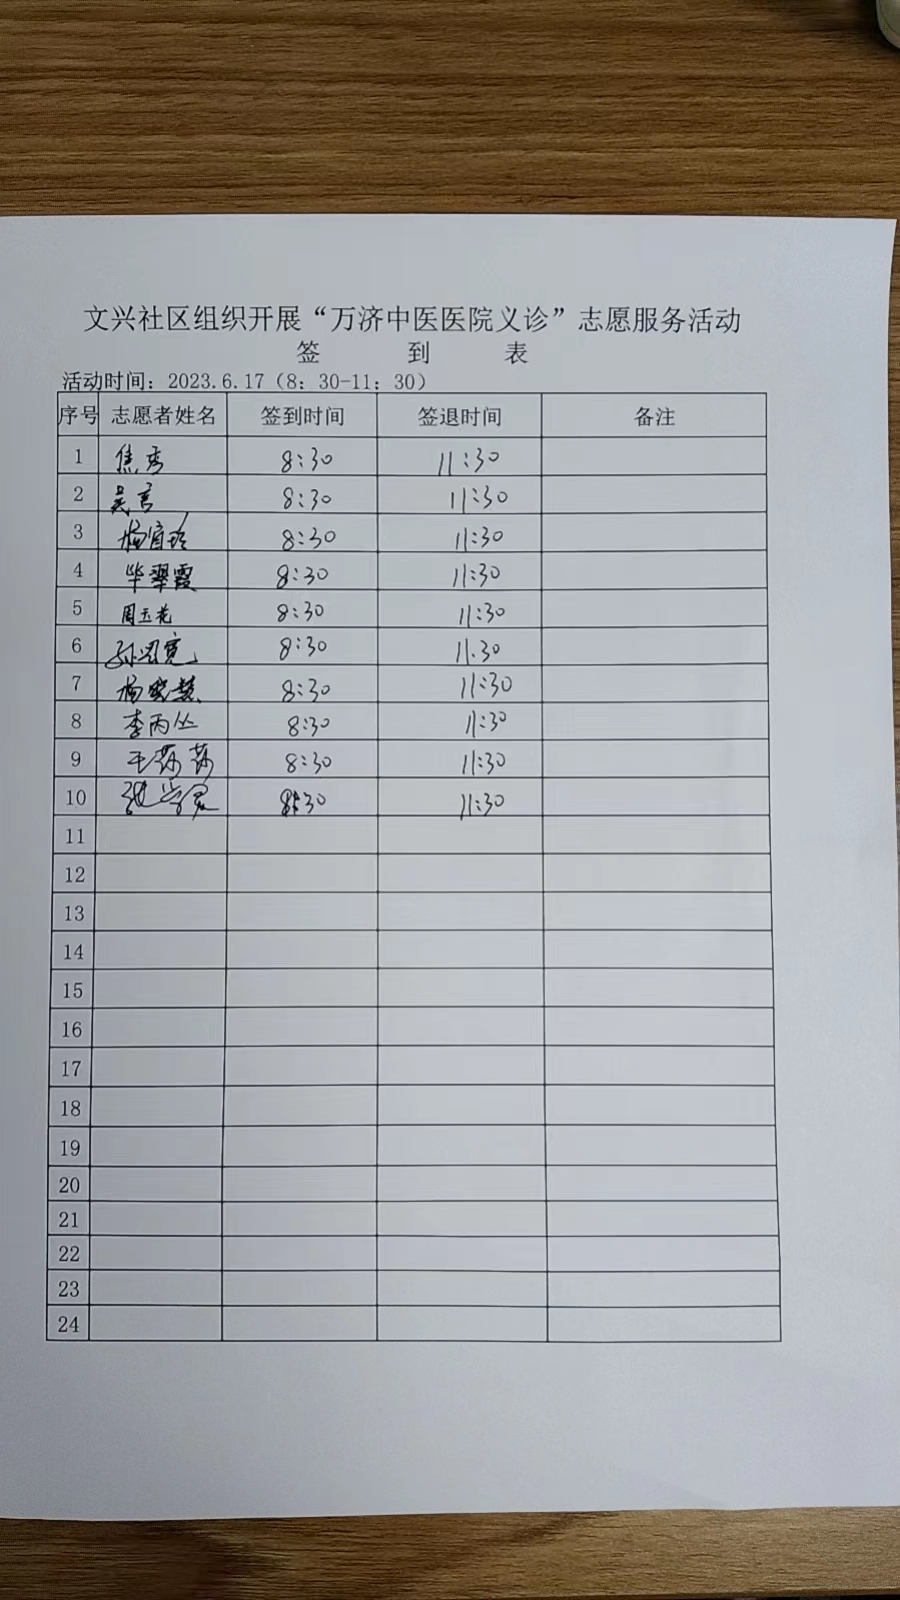 文兴社区组织开展“万济中医医院义诊”志愿服务活动
签 到 表
活动时间：2023.6.17（8：30-11：30）
序号 志愿者姓名 签到时间 签退时间 备注
1 焦秀 8:30 11:30
2 吴言 8:30 11:30
3 杨宜玲 8:30 11:30
4 毕翠霞 8:30 11:30
5 周玉花 8:30 11:30
6 8:30 11:30
7 杨晓慧 8:30 11:30
8 李丙丛 8:30 11:30
9 王莎莎 8:30 11:30
10 8:30 11:30
11
12
13
14
15
16
17
18
19
20
21
22
23
24